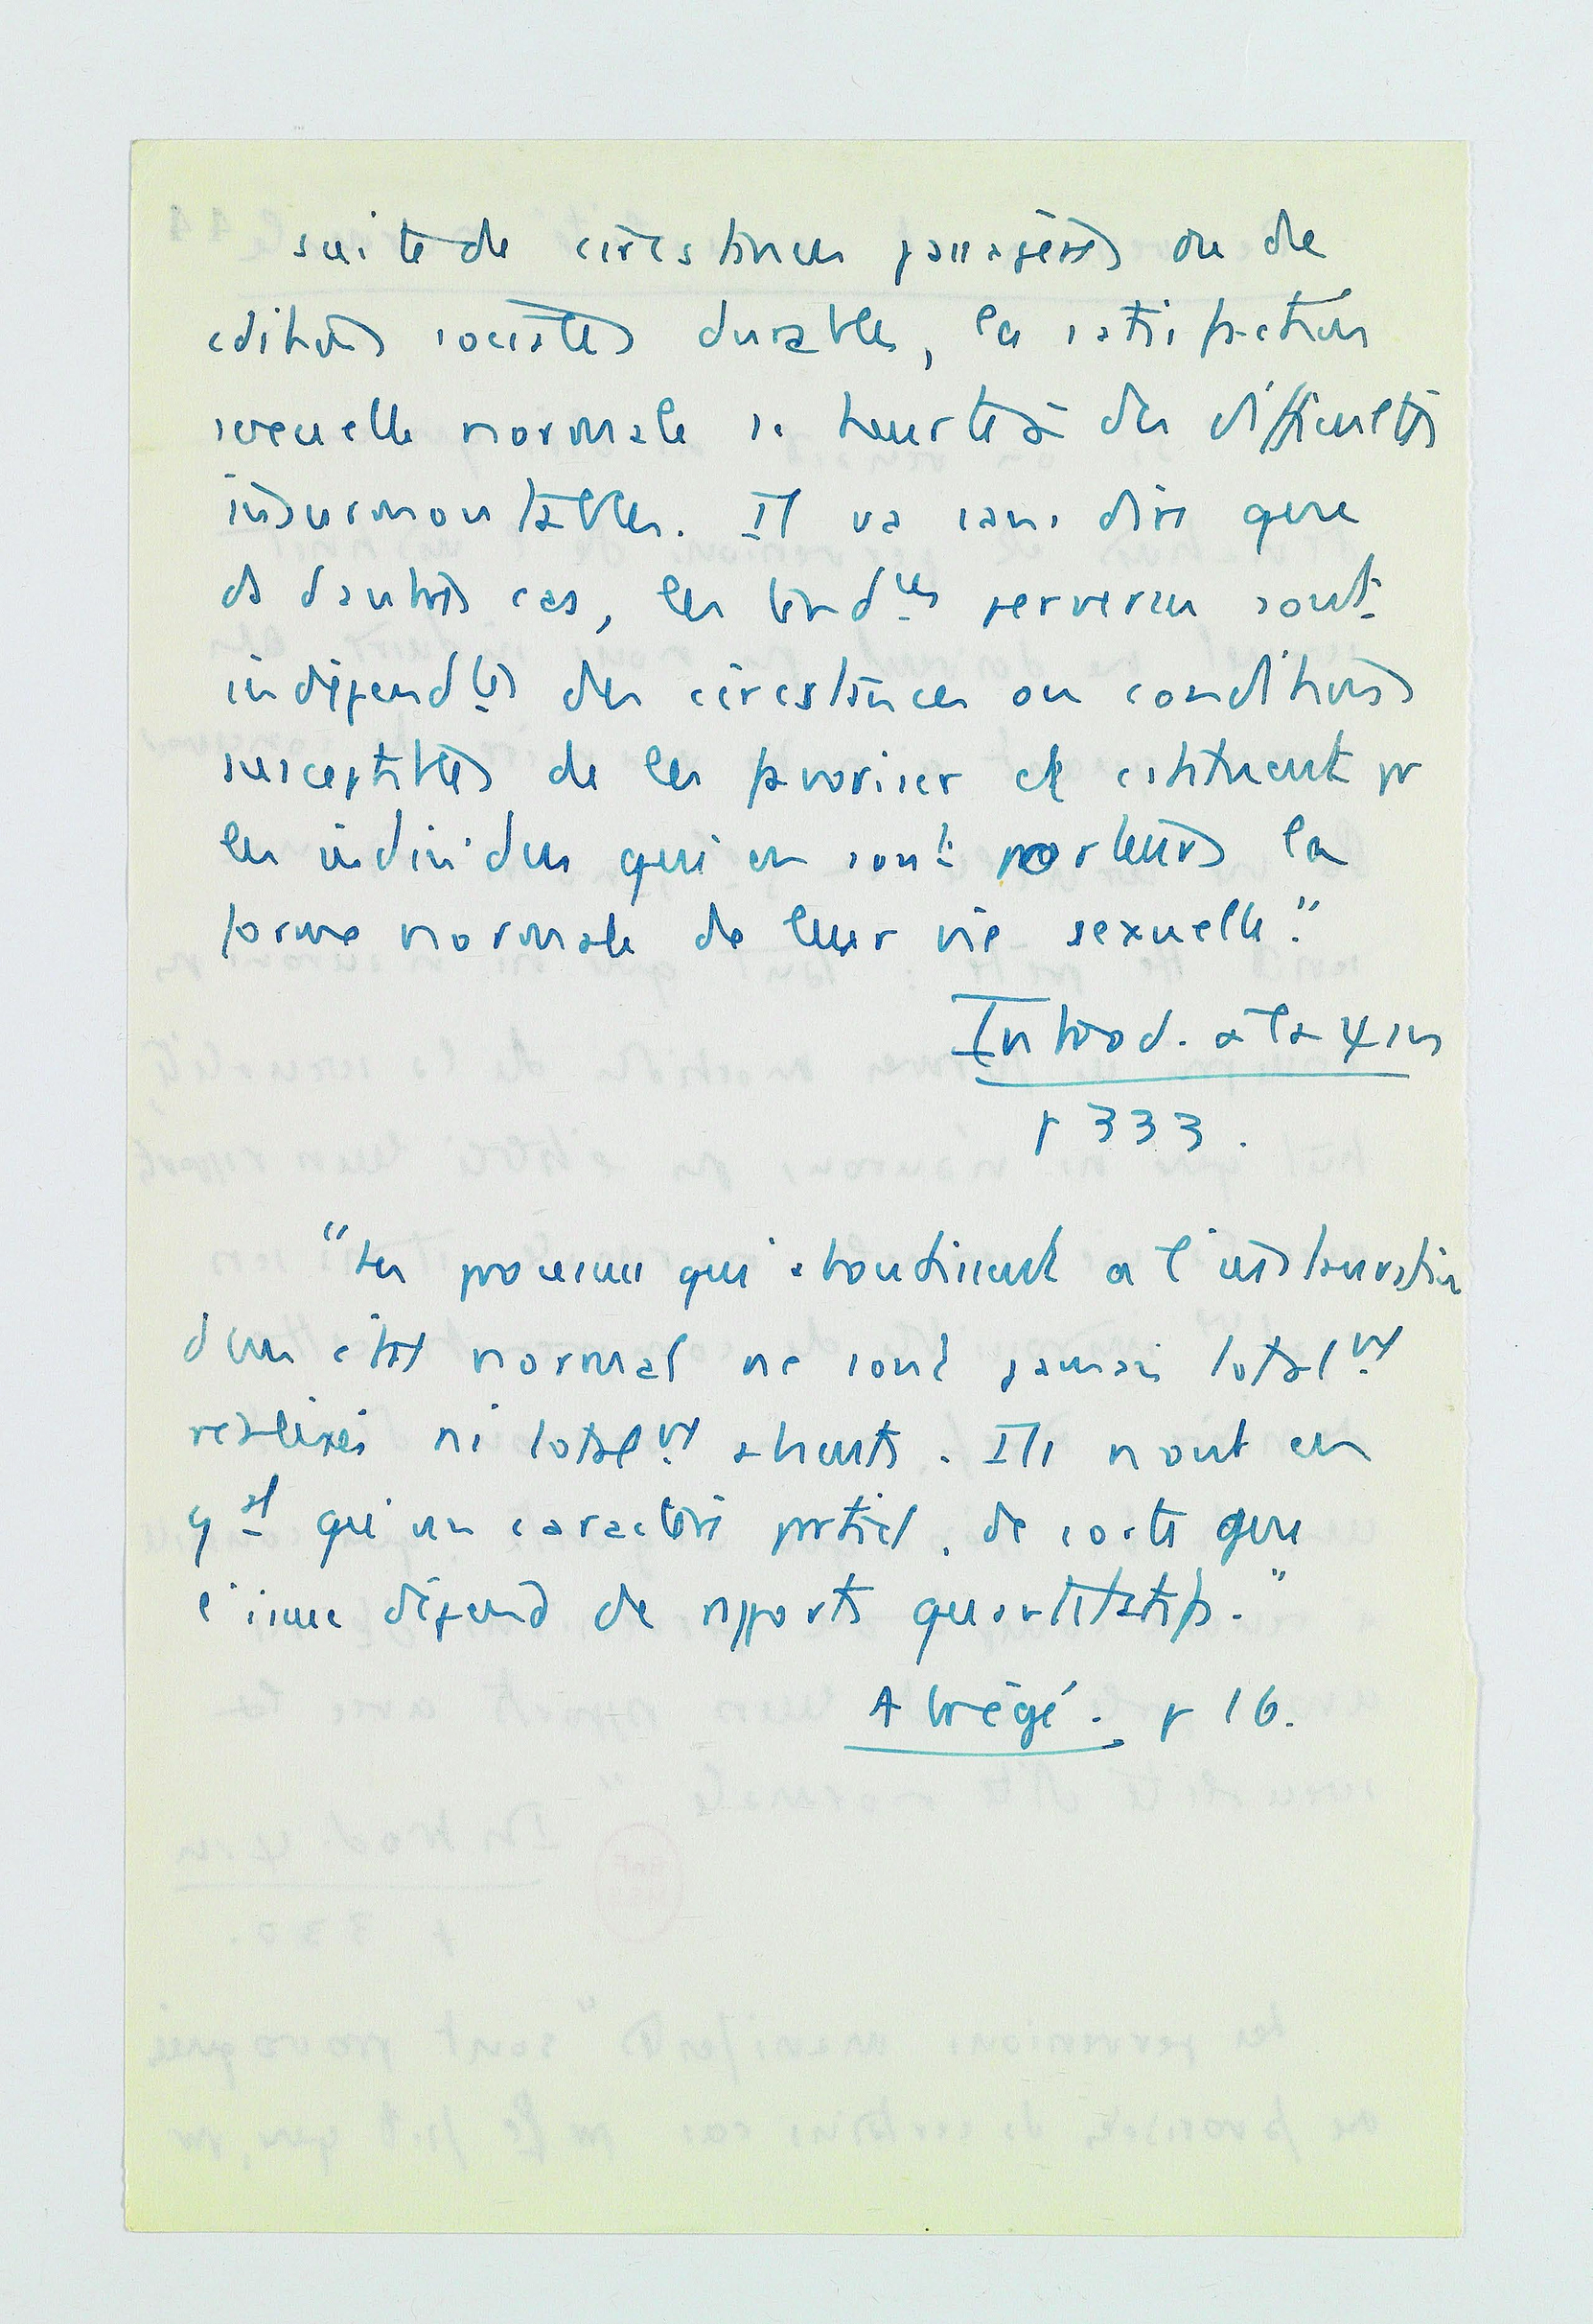 suite de circstances passagères ou de
cditions sociales durables, la satisfaction
sexuelle normale se heurte à des difficultés
insurmontables. Il va sans dire que
ds d'autres cas, les tend^ces perverses sont
indépend^tes des circstances ou conditions
susceptibles de les favoriser et cstituent pr
les individus qui en sont porteurs la
forme normale de leur vie sexuelle."
Introd. à la ψse
p 333.
"Les processus qui aboutissent à l'instauration
d'un état normal ne sont jamais total^nt
réalisés ni total^nt absents. Ils n'ont en
g^al qu'un caractère partiel, de sorte que
l'issue dépend de rapports quantitatifs."
Abrégé. p 16.